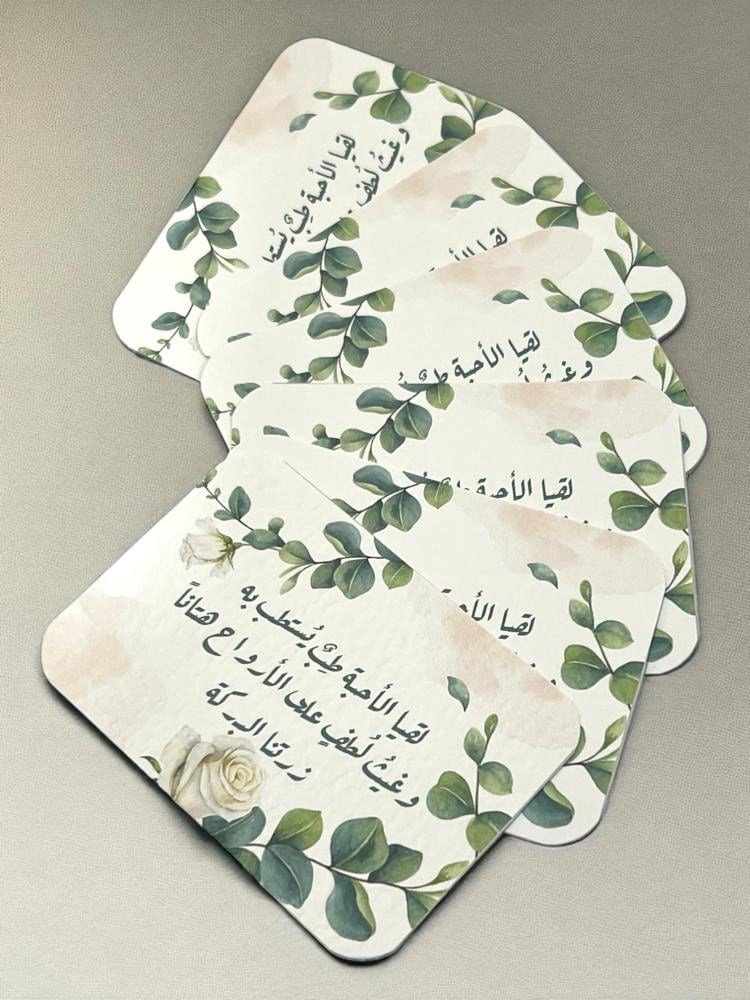 لقيا الأحبة طبٌ
وغيثُ لُطفٍ
لقيا
لقيا الأحبة طبٌ
وغيثُ
لقيا الأحبة
لقيا
لقيا الأحبة طبٌ يُستطب به
وغيثُ لُطفٍ على الأرواح هتاناً
زرتنا البركة